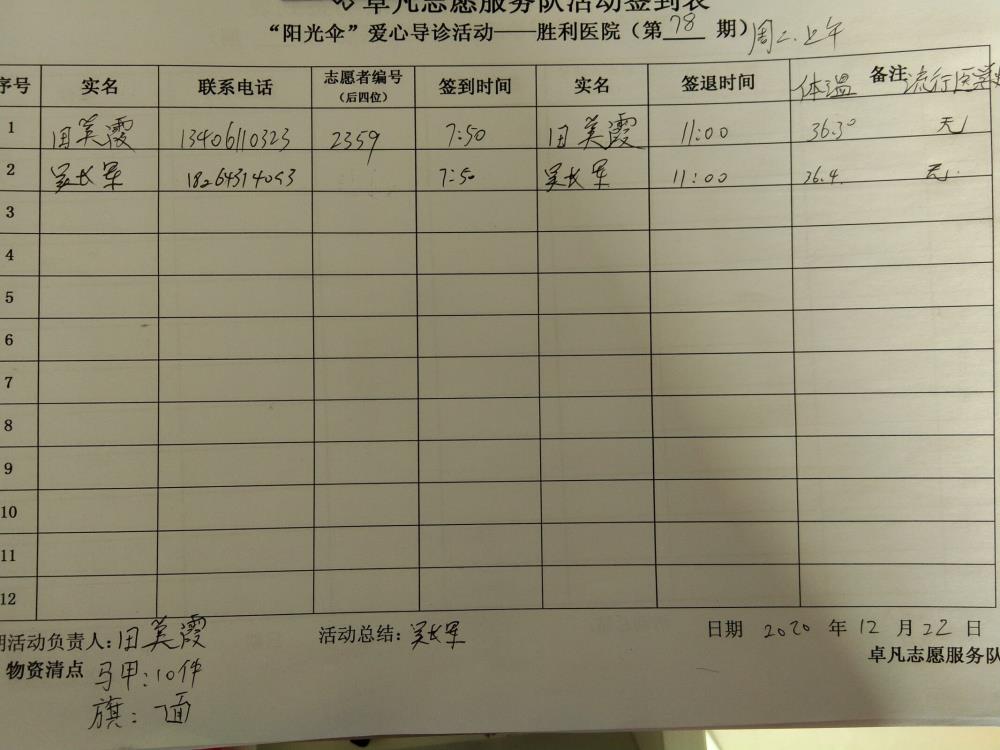 卓凡志愿服务队活动签到表
“阳光伞”爱心导诊活动——胜利医院（第 78 期）周二.上午
序号 实名 联系电话 志愿者编号（后四位） 签到时间 实名 签退时间 体温 备注 流行医学史
1 田美霞 13406110323 2359 7:50 田美霞 11:00 36.3° 无
2 吴长军 18264314093 7:50 吴长军 11:00 36.4. 无.
3
4
5
6
7
8
9
10
11
12
期活动负责人：田美霞 活动总结：吴长军 日期 2020 年 12 月 22 日
物资清点 马甲：10件 卓凡志愿服务队
旗：面